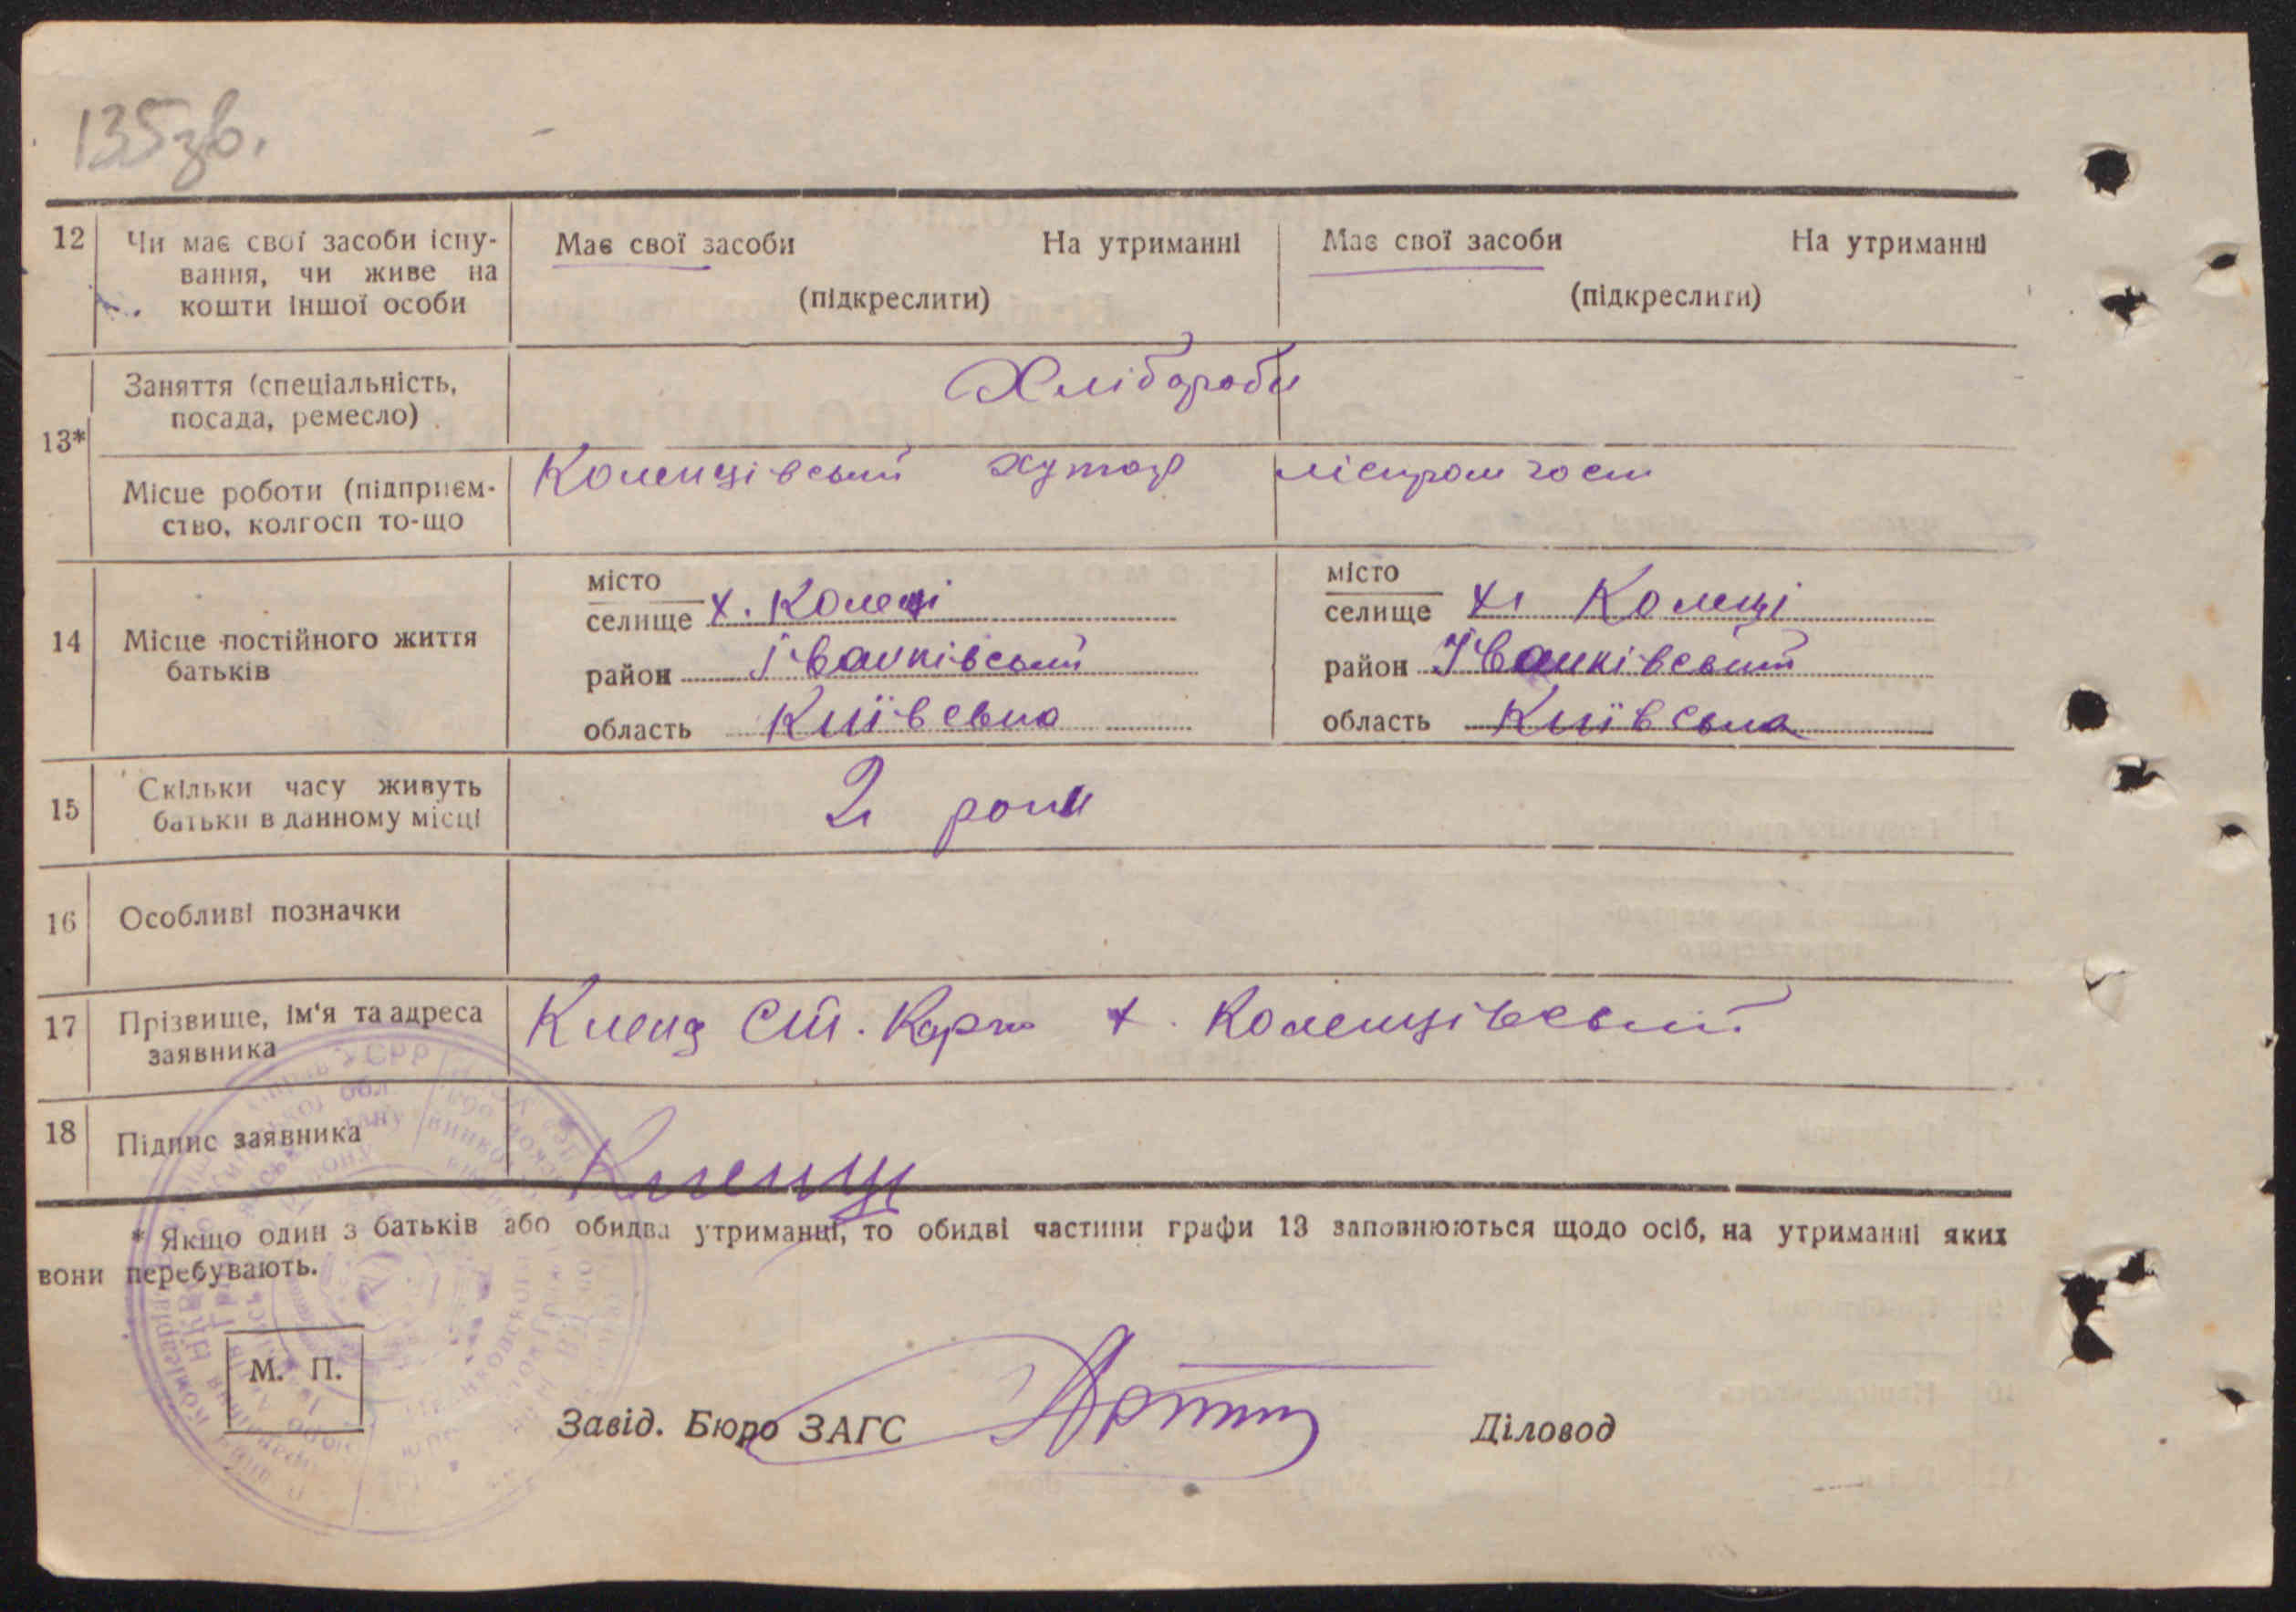 135 зв.
12 Чи має свої засоби існу-
вання, чи живе на
кошти іншої особи
Має свої засоби На утриманні
(підкреслити)
Має свої засоби На утриманні
(підкреслити)
13*
Заняття (спеціальність,
посада, ремесло)
Хлібороби
Місце роботи (підприєм-
ство, колгосп то-що
хутор
14 Місце постійного життя
батьків
місто
селище х.
район Іванківський
область Київська
місто
селище х.
район Іванківський
область Київська
15 Скільки часу живуть
батьки в данному місці
2 роки
16 Особливі позначки
17 Прізвище, ім'я та адреса
заявника
х.
18 Підпис заявника
* Якщо один з батьків або обидва утриманці, то обидві частини графи 13 заповнюються щодо осіб, на утриманні яких
вони перебувають.
М. П.
Завід. Бюро ЗАГС
Діловод